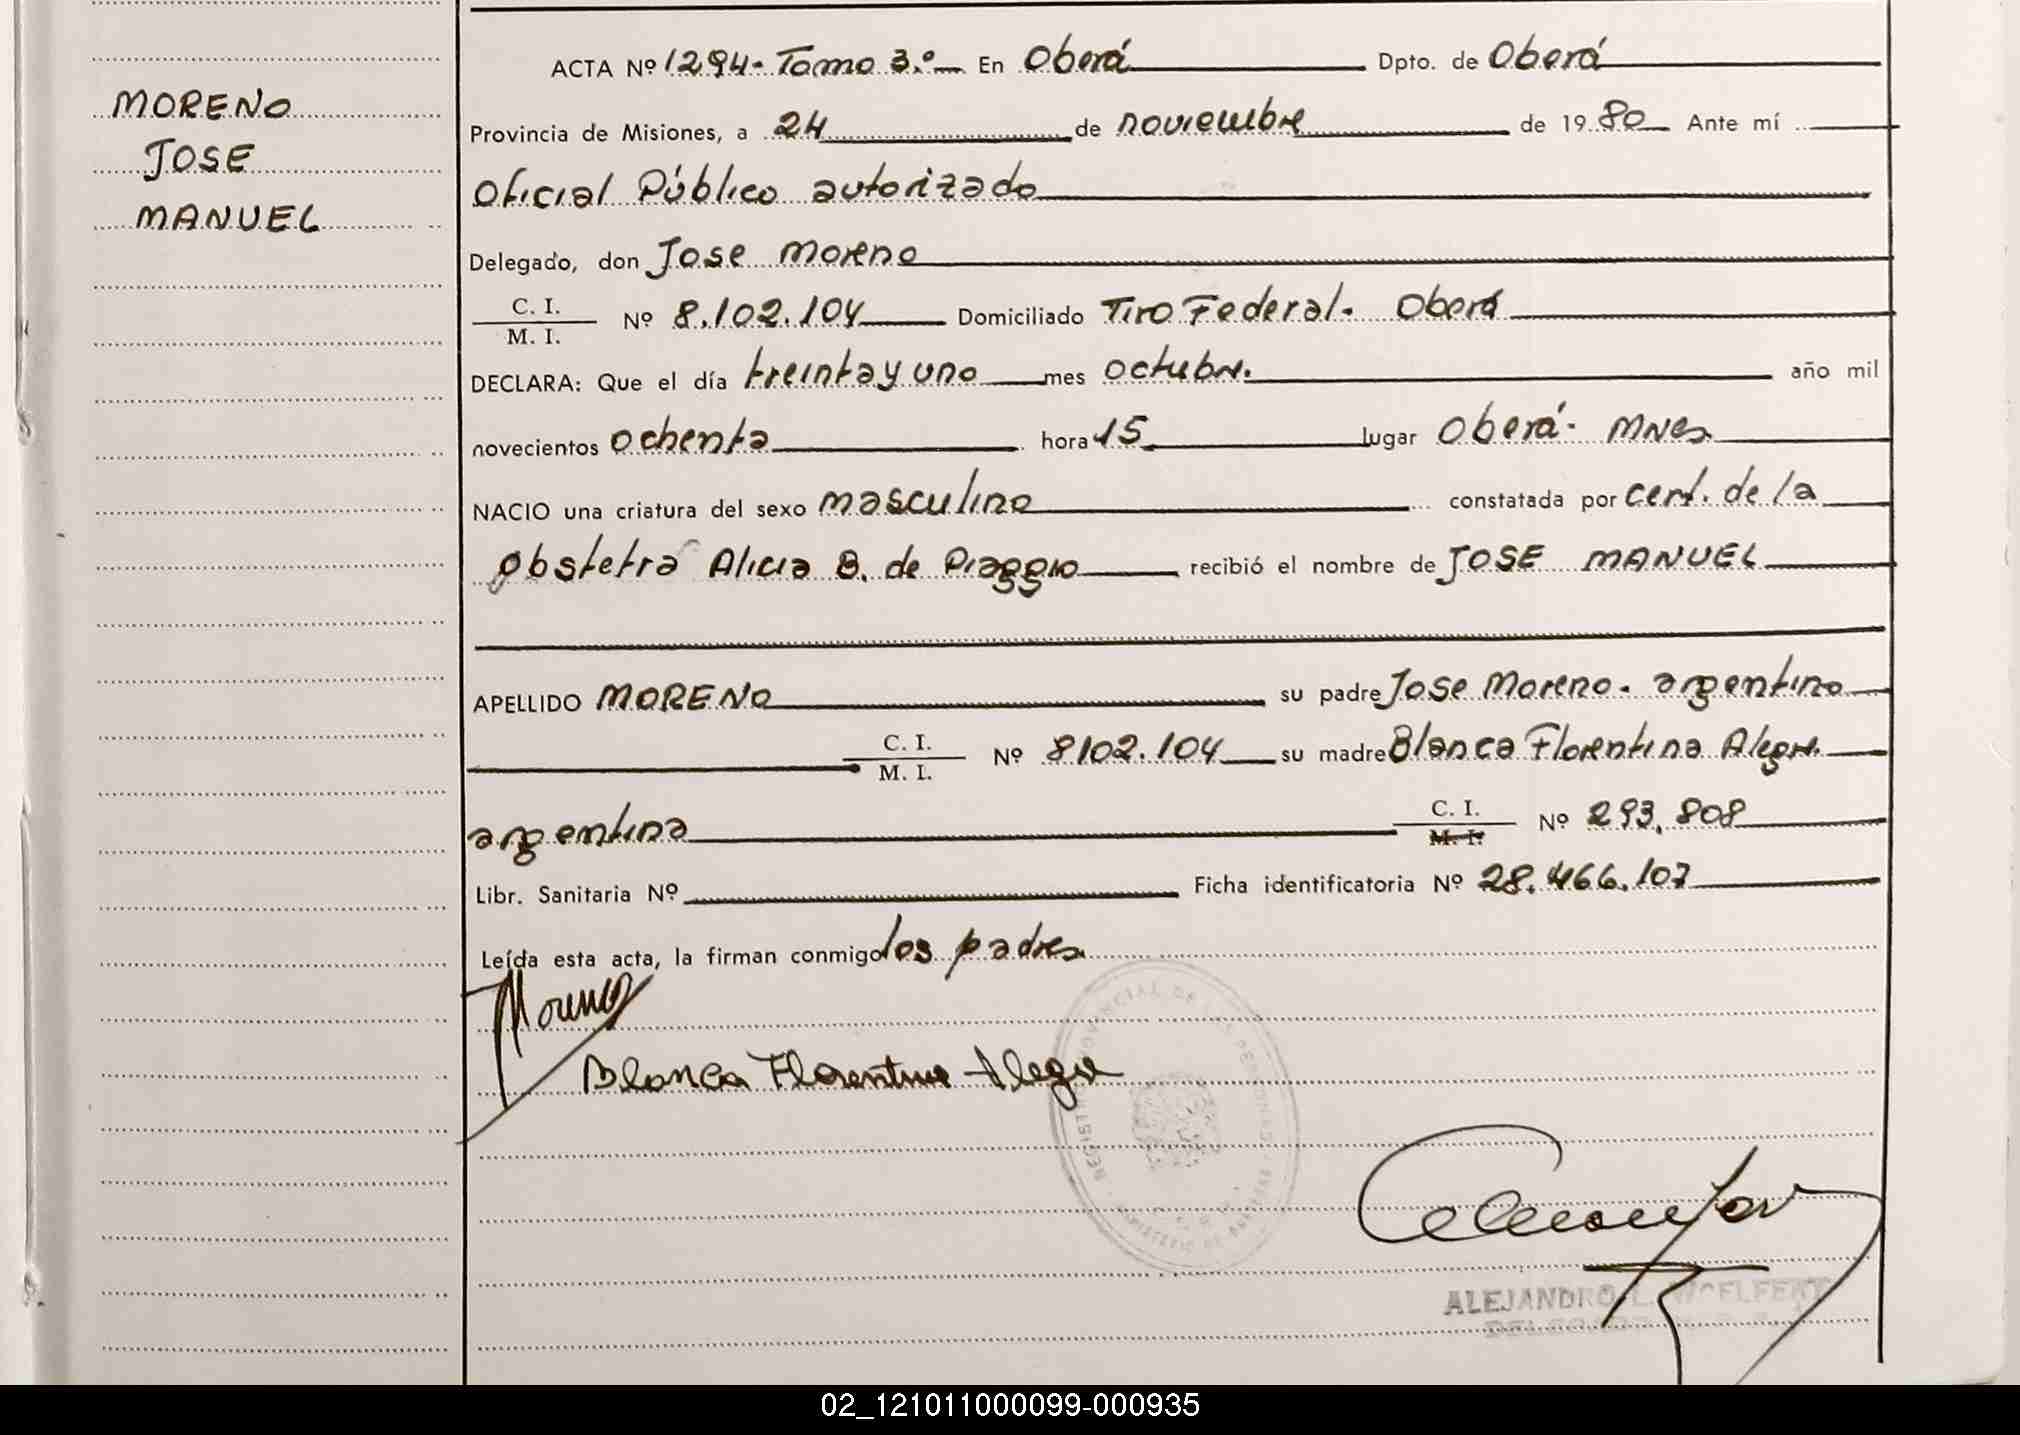 MORENO
JOSE
MANUEL
ACTA Nº 1294- Tomo 3.º En Oberá Dpto. de Oberá
Provincia de Misiones, a 24 de noviembre de 1980 Ante mí
Oficial Público autorizado
Delegado, don Jose Moreno
C. I.
M. I. Nº 8.102.104 Domiciliado Tiro Federal. Oberá
DECLARA: Que el día treinta y uno mes octubre. año mil
novecientos ochenta hora 15 lugar Oberá- Mnes
NACIO una criatura del sexo masculino constatada por cert. de la
obstetra Alicia B. de Piaggio recibió el nombre de JOSE MANUEL
APELLIDO MORENO su padre Jose Moreno. argentino
C. I.
M. I. Nº 8102.104 su madre Blanca Florentina Alegre.
argentina C. I.
M. I. Nº 293.808
Libr. Sanitaria Nº Ficha identificatoria Nº 28.466.107
Leída esta acta, la firman conmigo los padres
Moreno
Blanca Florentina Alegre
REGISTRO PROVINCIAL DE LAS PERSONAS
ALEJANDRO
02_121011000099-000935